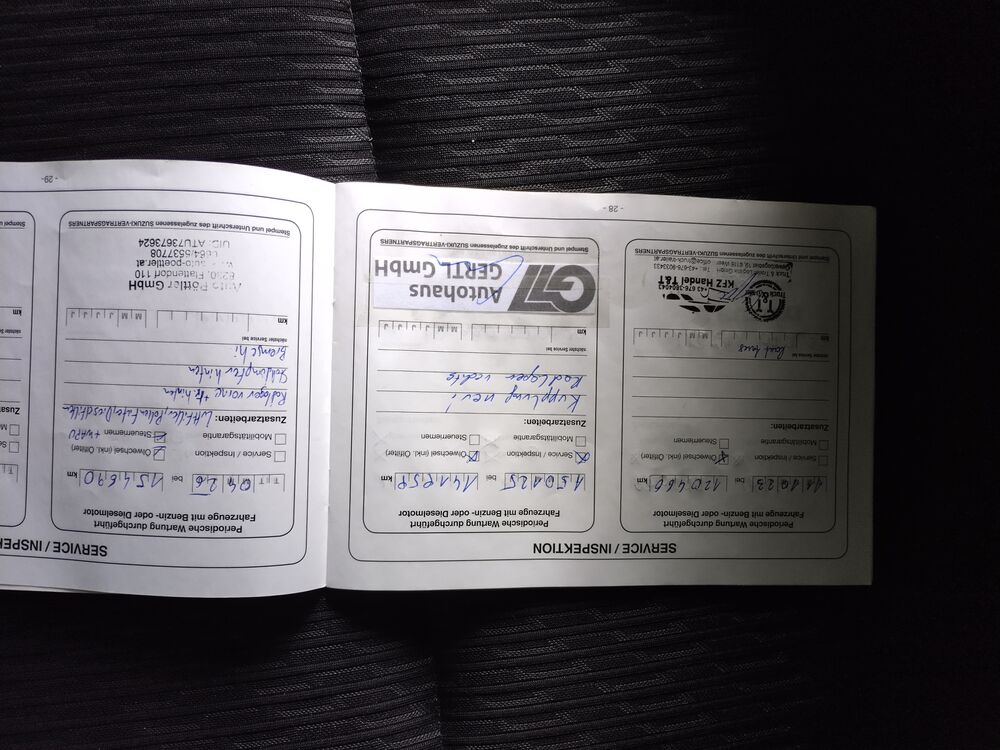 SERVICE / INSPEKTION
Periodische Wartung durchgeführt
Fahrzeuge mit Benzin- oder Dieselmotor
11 10 23 bei 120466 km
Service / Inspektion
Ölwechsel (inkl. Ölfilter)
Mobilitätsgarantie
Steuerriemen
nächster Service bei
KFZ Handel T&T
Truck & Trailer
Stempel und Unterschrift des zugelassenen SUZUKI-VERTRAGSPARTNERS
Periodische Wartung durchgeführt
Fahrzeuge mit Benzin- oder Dieselmotor
15 01 25 bei 141959 km
Service / Inspektion
Ölwechsel (inkl. Ölfilter)
Mobilitätsgarantie
Steuerriemen
Zusatzarbeiten:
Kupplung neu!
Radlager rechts
nächster Service bei
km
M M J J J J
Autohaus
GERTL GmbH
Stempel und Unterschrift des zugelassenen SUZUKI-VERTRAGSPARTNERS
- 28 -
SERVICE / INSPE
Periodische Wartung durchgeführt
Fahrzeuge mit Benzin- oder Dieselmotor
04 26 bei 154690 km
Service / Inspektion
Ölwechsel (inkl. Ölfilter)
Mobilitätsgarantie
Steuerriemen + WAPU
Zusatzarbeiten:
Radlager vorne + hinten
Stoßdämpfer hinten
Bremse hi
nächster Service bei
km
M M J J J J
Auto Pöttler GmbH
8230, Flattendorf 110
0664/5537708
UID: ATU73673624
Stempel und Unterschrift des zugelassenen SUZUKI-VERTRAGSPARTNERS
- 29 -